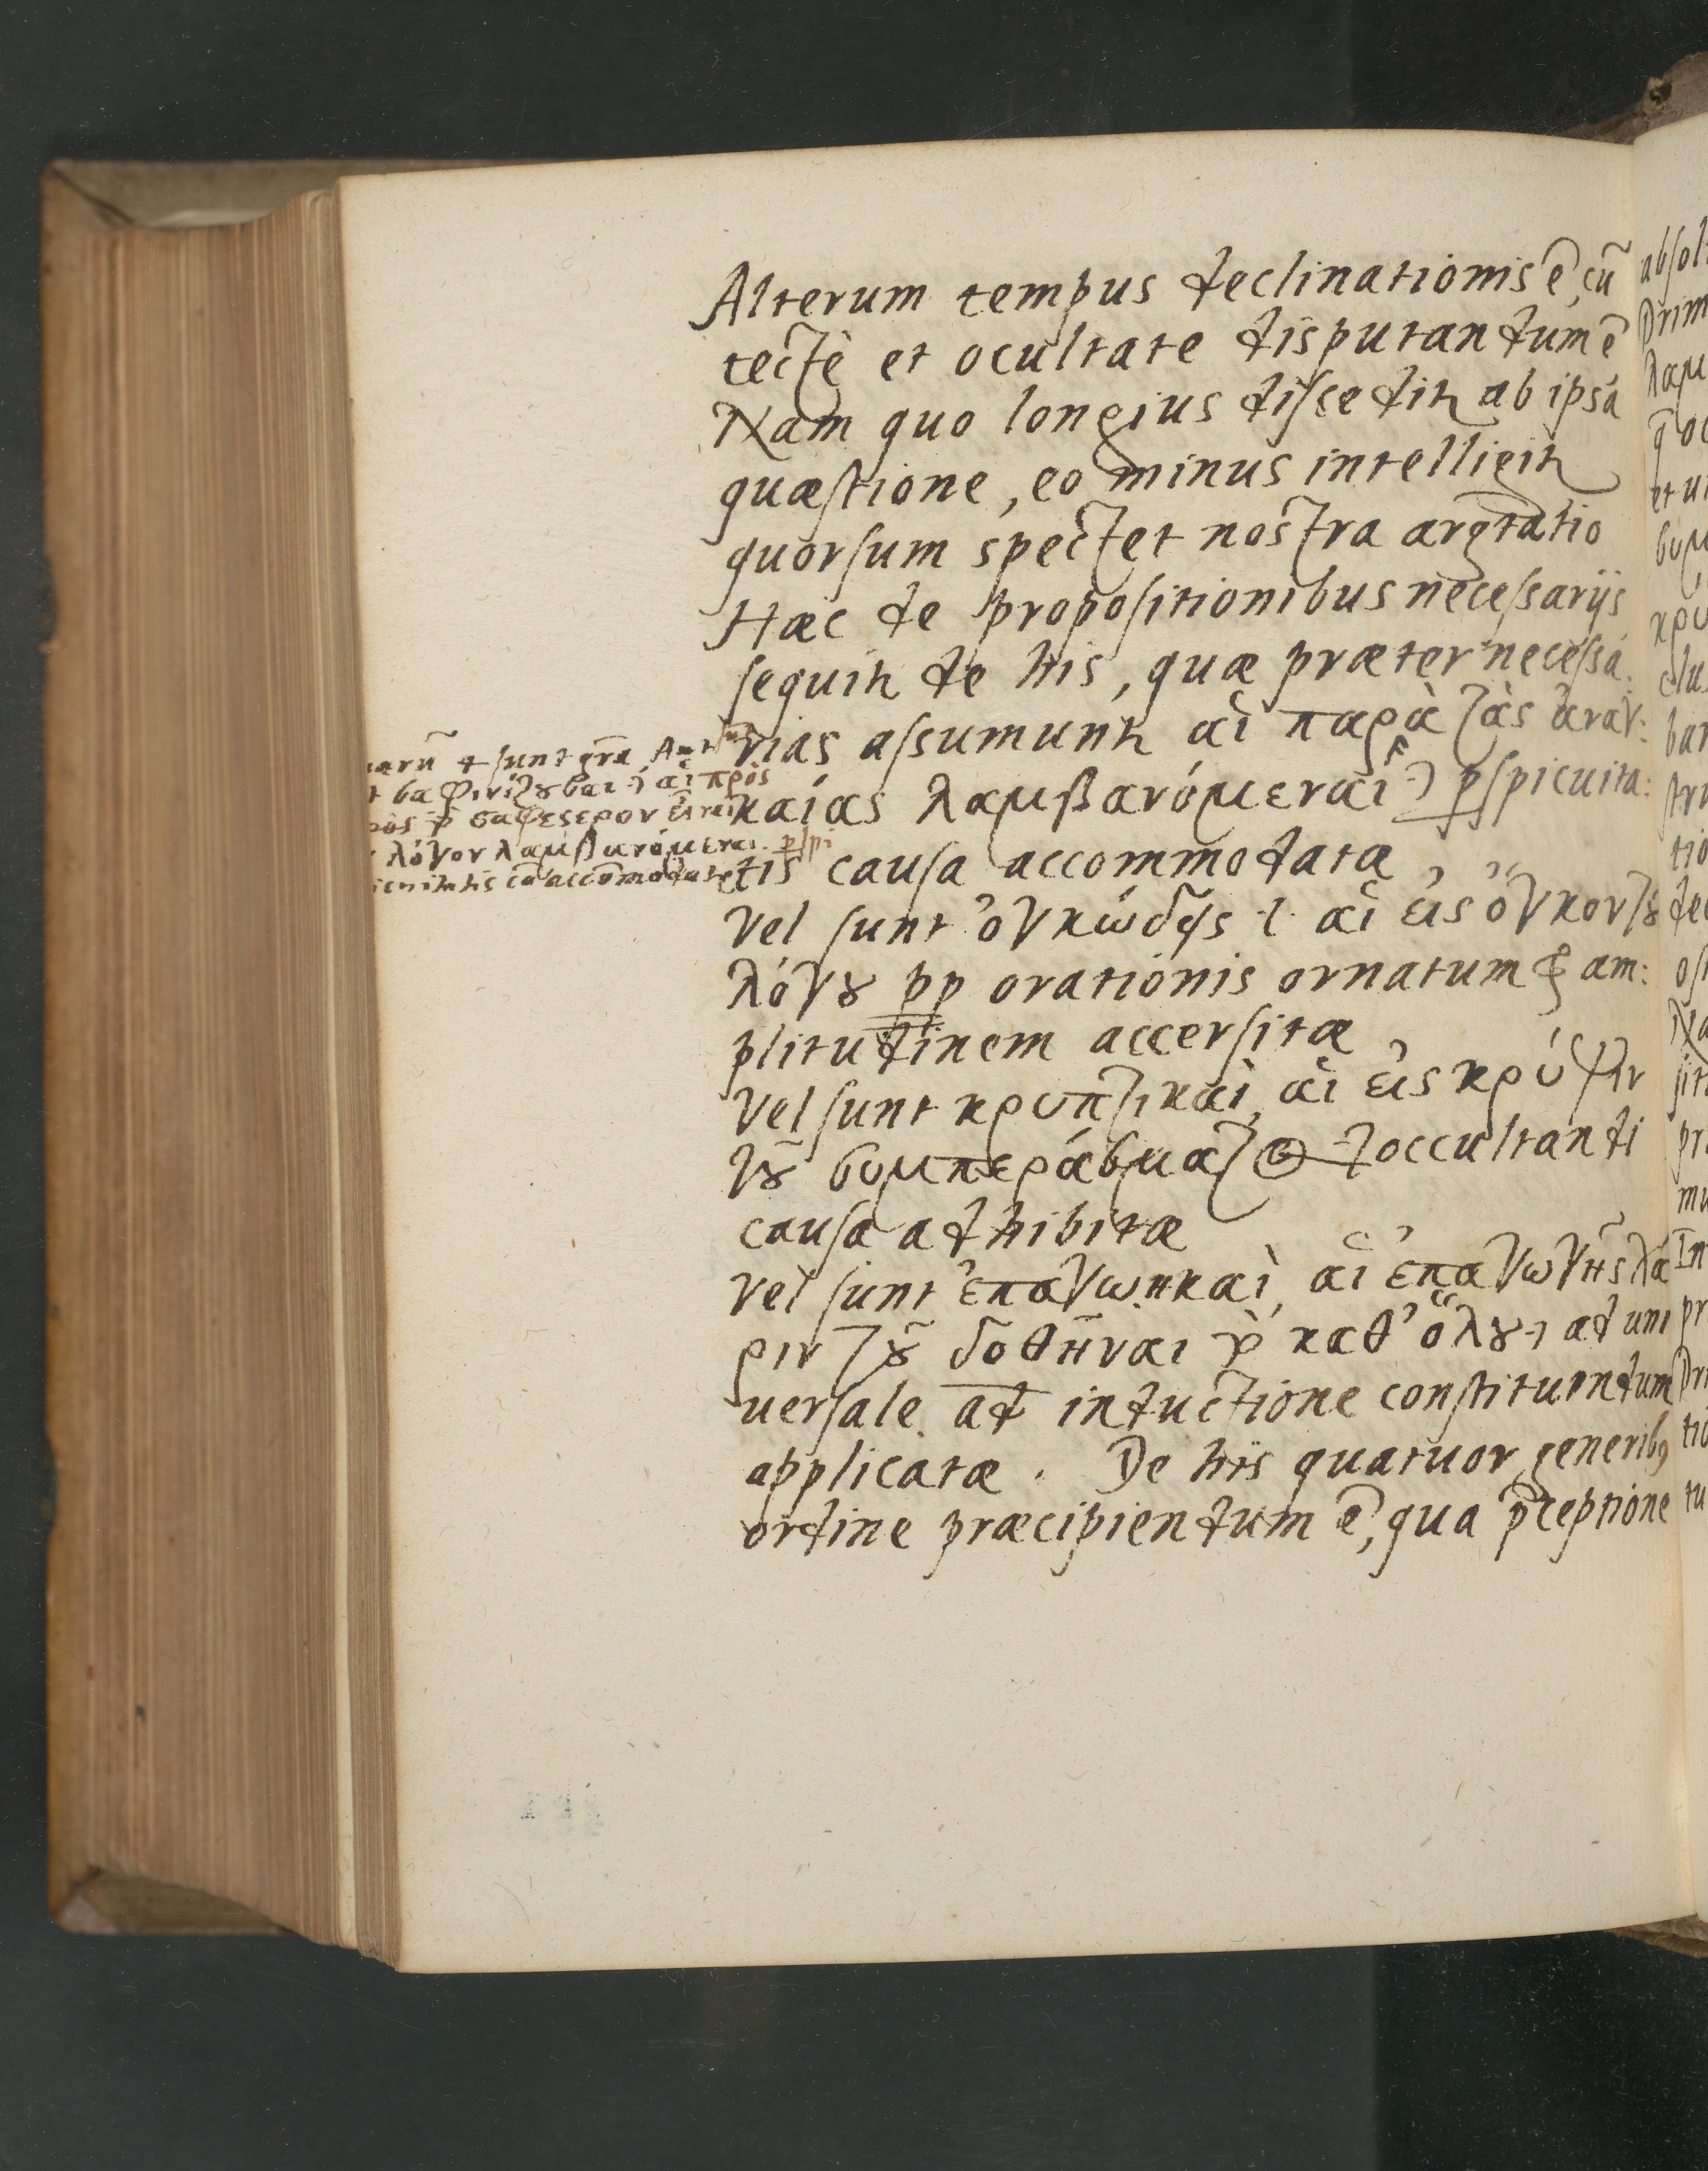 Alterum tempus declinationis ē, cū
tectè et ocultate disputandum ē
Nam quo longius dissedit ab ipsa
quæstione, eo minus intelligit
quorsum spectet nostra argtatio
Hæc de propositionibus necessarijs
sequit de his, quæ præter necessa:
rias assumunt αἱ παρὰ τὰς ἀναγ:
καίας λαμβανόμεναι pspicuita:
tis causa accommodatæ
Vel sunt ὀγκώδης .i. αἱ εἰς ὄγκον τȣ
λόγȣ pp orationis ornatum & am:
plitudinem accersitæ
Vel sunt κρυπτικαὶ, αἱ εἰς κρύψιν
τȣ͂ συμπεράσματος occultandi
causa adhibitæ
Vel sunt ἐπαγωγικαὶ, αἱ ἐπαγωγῆς χά
ριν τȣ͂ δοθῆναι τὸ καθ' ὅλȣ ad uni
uersale ad inductione constituendum
applicatæ. De his quatuor generibꝰ
ordine præcipiendum ē, qua pceptione
sunt grā
αἱ πρὸς
σαφέστερον εἶναι
λόγον λαμβανόμεναι pspi
cuitatis cā accomodatæ